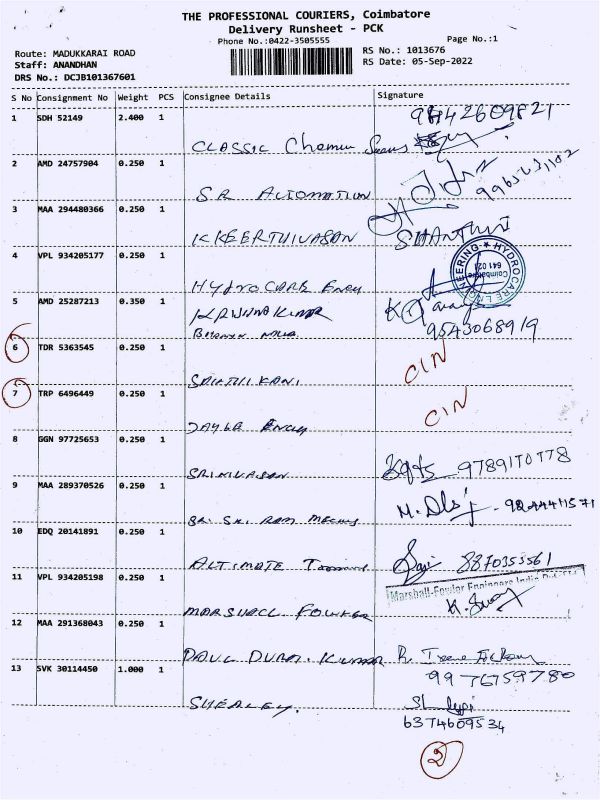 THE PROFESSIONAL COURIERS, Coimbatore
Delivery Runsheet - PCK
Phone No.:0422-3505555
Page No.:1
Route: MADUKKARAI ROAD
RS No.: 1013676
Staff: ANANDHAN
RS Date: 05-Sep-2022
DRS No.: DCJB101367601
S No Consignment No Weight PCS Consignee Details Signature
1 SDH 52149 2.400 1
CLASSIC
2 AMD 24757904 0.250 1
SR AUTOMATION
3 MAA 294480366 0.250 1
K KEERTHIVASAN SHANTHINI
4 VPL 934205177 0.250 1
HYDROCARE ENGG
HYDROCARE ENGINEERING
Coimbatore
641 021
5 AMD 25287213 0.350 1
KRISHNAKUMAR
9543068919
6 TDR 5363545 0.250 1 CIN
SAKTHI KANI
7 TRP 6496449 0.250 1 CIN
ENGG
8 GGN 97725653 0.250 1
SRINIVASAN 9789170778
9 MAA 289370526 0.250 1
SRI SRI RAM
10 EDQ 20141891 0.250 1
ALTIMATE 8870353561
11 VPL 934205198 0.250 1
Marshall-Fowler Engineers India
MARSHALL FOWLER
12 MAA 291368043 0.250 1
PAUL DURAI KUMAR
9976759780
13 SVK 30114450 1.000 1
SHEALEY.
6374609534
2